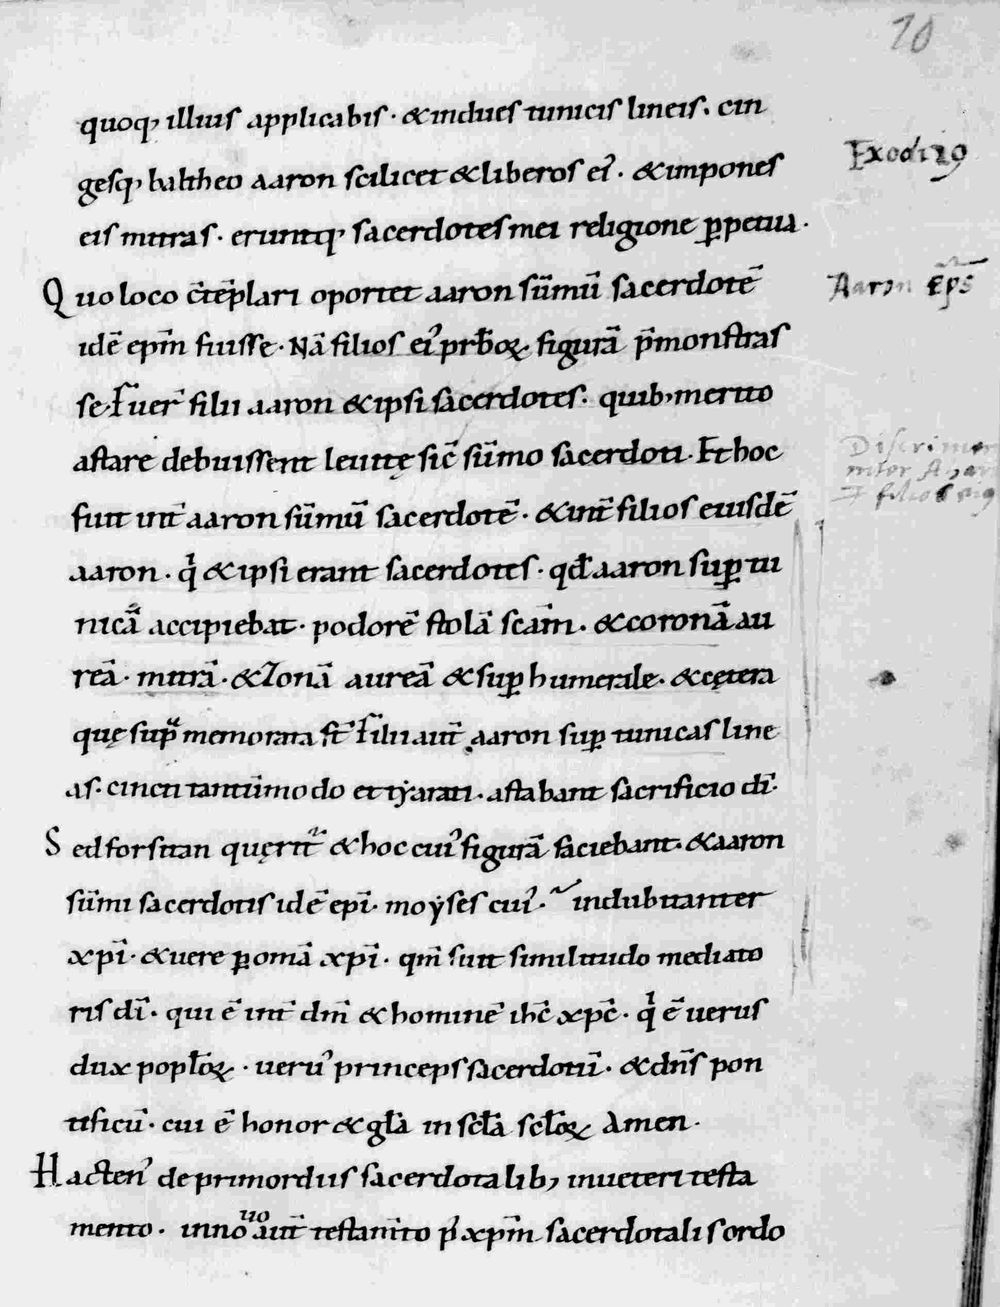 70
quoq; illius applicabis · & indues tunicis lineis · cin
Exodi 29
gesq; baltheo aaron scilicet & liberos ei᾿ · & impones
eis mitras · eruntq; sacerdotes mei religione ꝑpetua ·
Quo loco c̄tēplari oportet aaron sūmū sacerdotē
Aaron ep̄s
idē ep̄m fuisse · Nā filios ei᾿ prb̄oꝝ figurā p̄monstras
se · Fuer̄ filii aaron & ipsi sacerdotes · quib; merito
astare debuissent leuitę sic̄ sūmo sacerdoti · Et hoc
Discrimen
inter Aaron
& filios eius
fuit int̄ aaron sūmū sacerdotē · & int̄ filios eiusdē
aaron · qͥ & ipsi erant sacerdotes · qđ aaron suꝑ tu
nicā accipiebat · podorē stolā sc̄am · & coronā au
reā · mitrā · & zonā aureā & suꝑ humerale · & cętera
quę supᵃ memorata st̄ Filii aut̄ aaron suꝑ tunicas line
as · cincti tantūmodo et tẏarati · astabant sacrificio dī ·
Sed forsitan quęrit̄ & hoc cui᾿ figurā faciebant · & aaron
sūmi sacerdotis idē ep̄i · moẏses cui᾿ · indubitanter
xp̄i · & uere ꝑ omā xp̄i · qm̄ fuit similitudo mediato
ris dī · qui ē int̄ dm̄ & hominē ih̄c xp̄c · qͥ ē uerus
dux popl̄oꝝ · ueru᾿ princeps sacerdotū · & dn̄s pon
tificū · cui ē honor & gl̄a in scl̄a scl̄oꝝ Amen ·
Hacten᾿ de primordiis sacerdotalib; in ueteri testa
mento · in nouo aut̄ testam̄to p᾿ xp̄m sacerdotalis ordo